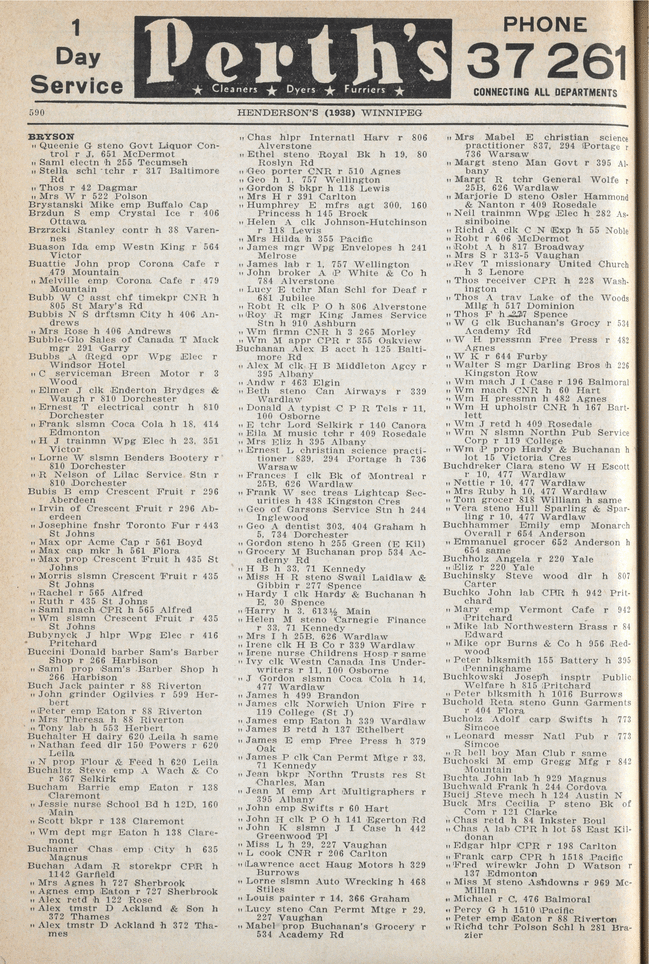 1
Day
Service
Perth's
★ Cleaners ★ Dyers ★ Furriers ★
PHONE
37 261
CONNECTING ALL DEPARTMENTS
590
HENDERSON'S (1938) WINNIPEG
BRYSON
„ Queenie G steno Govt Liquor Con-
trol r J, 651 McDermot
„ Saml electn h 255 Tecumseh
„ Stella schl tchr r 317 Baltimore
Rd
„ Thos r 42 Dagmar
„ Mrs W r 522 Polson
Brystanski Mike emp Buffalo Cap
Brzdun S emp Crystal Ice r 406
Ottawa
Brzrzcki Stanley contr h 38 Varen-
nes
Buason Ida emp Westn King r 564
Victor
Buattie John prop Corona Cafe r
479 Mountain
„ Melville emp Corona Cafe r 479
Mountain
Bubb W C asst chf timekpr CNR h
805 St Mary's Rd
Bubbis N S drftsmn City h 406 An-
drews
„ Mrs Rose h 406 Andrews
Bubble-Glo Sales of Canada T Mack
mgr 291 Garry
Bubbs A Regd opr Wpg Elec r
Windsor Hotel
„ C serviceman Breen Motor r 3
Wood
„ Elmer J clk Enderton Brydges &
Waugh r 810 Dorchester
„ Ernest T electrical contr h 810
Dorchester
„ Frank slsmn Coca Cola h 18, 414
Edmonton
„ H J trainmn Wpg Elec h 23, 351
Victor
„ Lorne W slsmn Benders Bootery r
810 Dorchester
„ R Nelson of Lilac Service Stn r
810 Dorchester
Bubis B emp Crescent Fruit r 296
Aberdeen
„ Irvin of Crescent Fruit r 296 Ab-
erdeen
„ Josephine fnshr Toronto Fur r 443
St Johns
„ Max opr Acme Cap r 561 Boyd
„ Max cap mkr h 561 Flora
„ Max prop Crescent Fruit h 435 St
Johns
„ Morris slsmn Crescent Fruit r 435
St Johns
„ Rachel r 565 Alfred
„ Ruth r 435 St Johns
„ Saml mach CPR h 565 Alfred
„ Wm slsmn Crescent Fruit r 435
St Johns
Bubynyck J hlpr Wpg Elec r 416
Pritchard
Buccini Donald barber Sam's Barber
Shop r 266 Harbison
„ Saml prop Sam's Barber Shop h
266 Harbison
Buch Jack painter r 88 Riverton
„ John grinder Ogilvies r 599 Her-
bert
„ Peter emp Eaton r 88 Riverton
„ Mrs Theresa h 88 Riverton
„ Tony lab h 553 Herbert
Buchalter H dairy 620 Leila h same
„ Nathan feed dlr 150 Powers r 620
Leila
„ N prop Flour & Feed h 620 Leila
Buchaltz Steve emp A Wach & Co
r 367 Selkirk
Bucham Barrie emp Eaton r 138
Claremont
„ Jessie nurse School Bd h 12D, 160
Main
„ Scott bkpr r 138 Claremont
„ Wm dept mgr Eaton h 138 Clare-
mont
Buchamer Chas emp City h 635
Magnus
Buchan Adam R storekpr CPR h
1142 Garfield
„ Mrs Agnes h 727 Sherbrook
„ Agnes emp Eaton r 727 Sherbrook
„ Alex retd h 122 Rose
„ Alex tmstr D Ackland & Son h
372 Thames
„ Alex tmstr D Ackland h 372 Tha-
mes
„ Chas hlpr Internatl Harv r 806
Alverstone
„ Ethel steno Royal Bk h 19, 80
Roslyn Rd
„ Geo porter CNR r 510 Agnes
„ Geo h 1, 757 Wellington
„ Gordon S bkpr h 118 Lewis
„ Mrs H r 391 Carlton
„ Humphrey E mfrs agt 300, 160
Princess h 145 Brock
„ Helen A clk Johnson-Hutchinson
r 118 Lewis
„ Mrs Hilda h 355 Pacific
„ James mgr Wpg Envelopes h 241
Melrose
„ James lab r 1, 757 Wellington
„ John broker A P White & Co h
784 Alverstone
„ Lucy E tchr Man Schl for Deaf r
681 Jubilee
„ Robt R clk P O h 806 Alverstone
„ Roy R mgr King James Service
Stn h 910 Ashburn
„ Wm firmn CNR h 3 265 Morley
„ Wm M appr CPR r 355 Oakview
Buchanan Alex B acct h 125 Balti-
more Rd
„ Alex M clk H B Middleton Agcy r
395 Albany
„ Andw r 463 Elgin
„ Beth steno Can Airways r 339
Wardlaw
„ Donald A typist C P R Tels r 11,
100 Osborne
„ E tchr Lord Selkirk r 140 Canora
„ Ella M music tchr r 409 Rosedale
„ Mrs Eliz h 395 Albany
„ Ernest L christian science practi-
tioner 839, 294 Portage h 736
Warsaw
„ Frances I clk Bk of Montreal r
25B, 626 Wardlaw
„ Frank W sec treas Lightcap Sec-
urities h 438 Kingston Cres
„ Geo of Garsons Service Stn h 244
Inglewood
„ Geo A dentist 303, 404 Graham h
5, 734 Dorchester
„ Gordon steno h 255 Green (E Kil)
„ Grocery M Buchanan prop 534 Ac-
ademy Rd
„ H B h 33, 71 Kennedy
„ Miss H R steno Swail Laidlaw &
Gibbin r 277 Spence
„ Hardy I clk Hardy & Buchanan h
E, 30 Spence
„ Harry h 3, 613½ Main
„ Helen M steno Carnegie Finance
r 33, 71 Kennedy
„ Mrs I h 25B, 626 Wardlaw
„ Irene clk H B Co r 339 Wardlaw
„ Irene nurse Childrens Hosp r same
„ Ivy clk Westn Canada Ins Under-
writers r 11, 100 Osborne
„ J Gordon slsmn Coca Cola h 14,
477 Wardlaw
„ James h 499 Brandon
„ James clk Norwich Union Fire r
119 College (St J)
„ James emp Eaton h 339 Wardlaw
„ James B retd h 137 Ethelbert
„ James E emp Free Press h 379
Oak
„ James P clk Can Permt Mtge r 33,
71 Kennedy
„ Jean bkpr Northn Trusts res St
Charles, Man
„ Jean M emp Art Multigraphers r
395 Albany
„ John emp Swifts r 60 Hart
„ John H clk P O h 141 Egerton Rd
„ John K slsmn J I Case h 442
Greenwood Pl
„ Miss L h 29, 227 Vaughan
„ L cook CNR r 206 Carlton
„ Lawrence acct Haug Motors h 329
Burrows
„ Lorne slsmn Auto Wrecking h 468
Stiles
„ Louis painter r 14, 366 Graham
„ Lucy steno Can Permt Mtge r 29,
227 Vaughan
„ Mabel prop Buchanan's Grocery r
534 Academy Rd
„ Mrs Mabel E christian science
practitioner 837, 294 Portage r
736 Warsaw
„ Margt steno Man Govt r 395 Al-
bany
„ Margt R tchr General Wolfe r
25B, 626 Wardlaw
„ Marjorie D steno Osler Hammond
& Nanton r 409 Rosedale
„ Neil trainmn Wpg Elec h 282 As-
siniboine
„ Richd A clk C N Exp h 55 Noble
„ Robt r 606 McDermot
„ Robt A h 817 Broadway
„ Mrs S r 313-5 Vaughan
„ Rev T missionary United Church
h 3 Lenore
„ Thos receiver CPR h 228 Wash-
ington
„ Thos A trav Lake of the Woods
Millg h 517 Dominion
„ Thos F h 227 Spence
„ W G clk Buchanan's Grocy r 534
Academy Rd
„ W H pressmn Free Press r 482
Agnes
„ W K r 644 Furby
„ Walter S mgr Darling Bros h 226
Kingston Row
„ Wm mach J I Case r 196 Balmoral
„ Wm mach CNR h 60 Hart
„ Wm H pressmn h 482 Agnes
„ Wm H upholstr CNR h 167 Bart-
lett
„ Wm J retd h 409 Rosedale
„ Wm N slsmn Northn Pub Service
Corp r 119 College
„ Wm P prop Hardy & Buchanan h
lot 15 Victoria Cres
Buchdreker Clara steno W H Escott
r 10, 477 Wardlaw
„ Nettie r 10, 477 Wardlaw
„ Mrs Ruby h 10, 477 Wardlaw
„ Tom grocer 818 William h same
„ Vera steno Hull Sparling & Spar-
ling r 10, 477 Wardlaw
Buchhammer Emily emp Monarch
Overall r 654 Anderson
„ Emmanuel grocer 652 Anderson h
654 same
Buchholz Angela r 220 Yale
„ Eliz r 220 Yale
Buchinsky Steve wood dlr h 807
Carter
Buchko John lab CPR h 942 Prit-
chard
„ Mary emp Vermont Cafe r 942
Pritchard
„ Mike lab Northwestern Brass r 84
Edward
„ Mike opr Burns & Co h 956 Red-
wood
„ Peter blksmith 155 Battery h 395
Penninghame
Buchkowski Joseph insptr Public
Welfare h 815 Pritchard
„ Peter blksmith h 1016 Burrows
Buchold Reta steno Gunn Garments
r 404 Flora
Bucholz Adolf carp Swifts h 773
Simcoe
„ Leonard messr Natl Pub r 773
Simcoe
„ R bell boy Man Club r same
Buchoski M emp Gregg Mfg r 842
Mountain
Buchta John lab h 929 Magnus
Buchwald Frank h 244 Cordova
Bucij Steve mech h 124 Austin N
Buck Mrs Cecilia P steno Bk of
Com r 121 Clarke
„ Chas retd h 84 Inkster Boul
„ Chas A lab CPR h lot 58 East Kil-
donan
„ Edgar hlpr CPR r 198 Carlton
„ Frank carp CPR h 1518 Pacific
„ Fred wirewkr John D Watson r
137 Edmonton
„ Miss M steno Ashdowns r 969 Mc-
Millan
„ Michael r C, 476 Balmoral
„ Percy G h 1510 Pacific
„ Peter emp Eaton r 88 Riverton
„ Richd tchr Polson Schl h 281 Bra-
zier